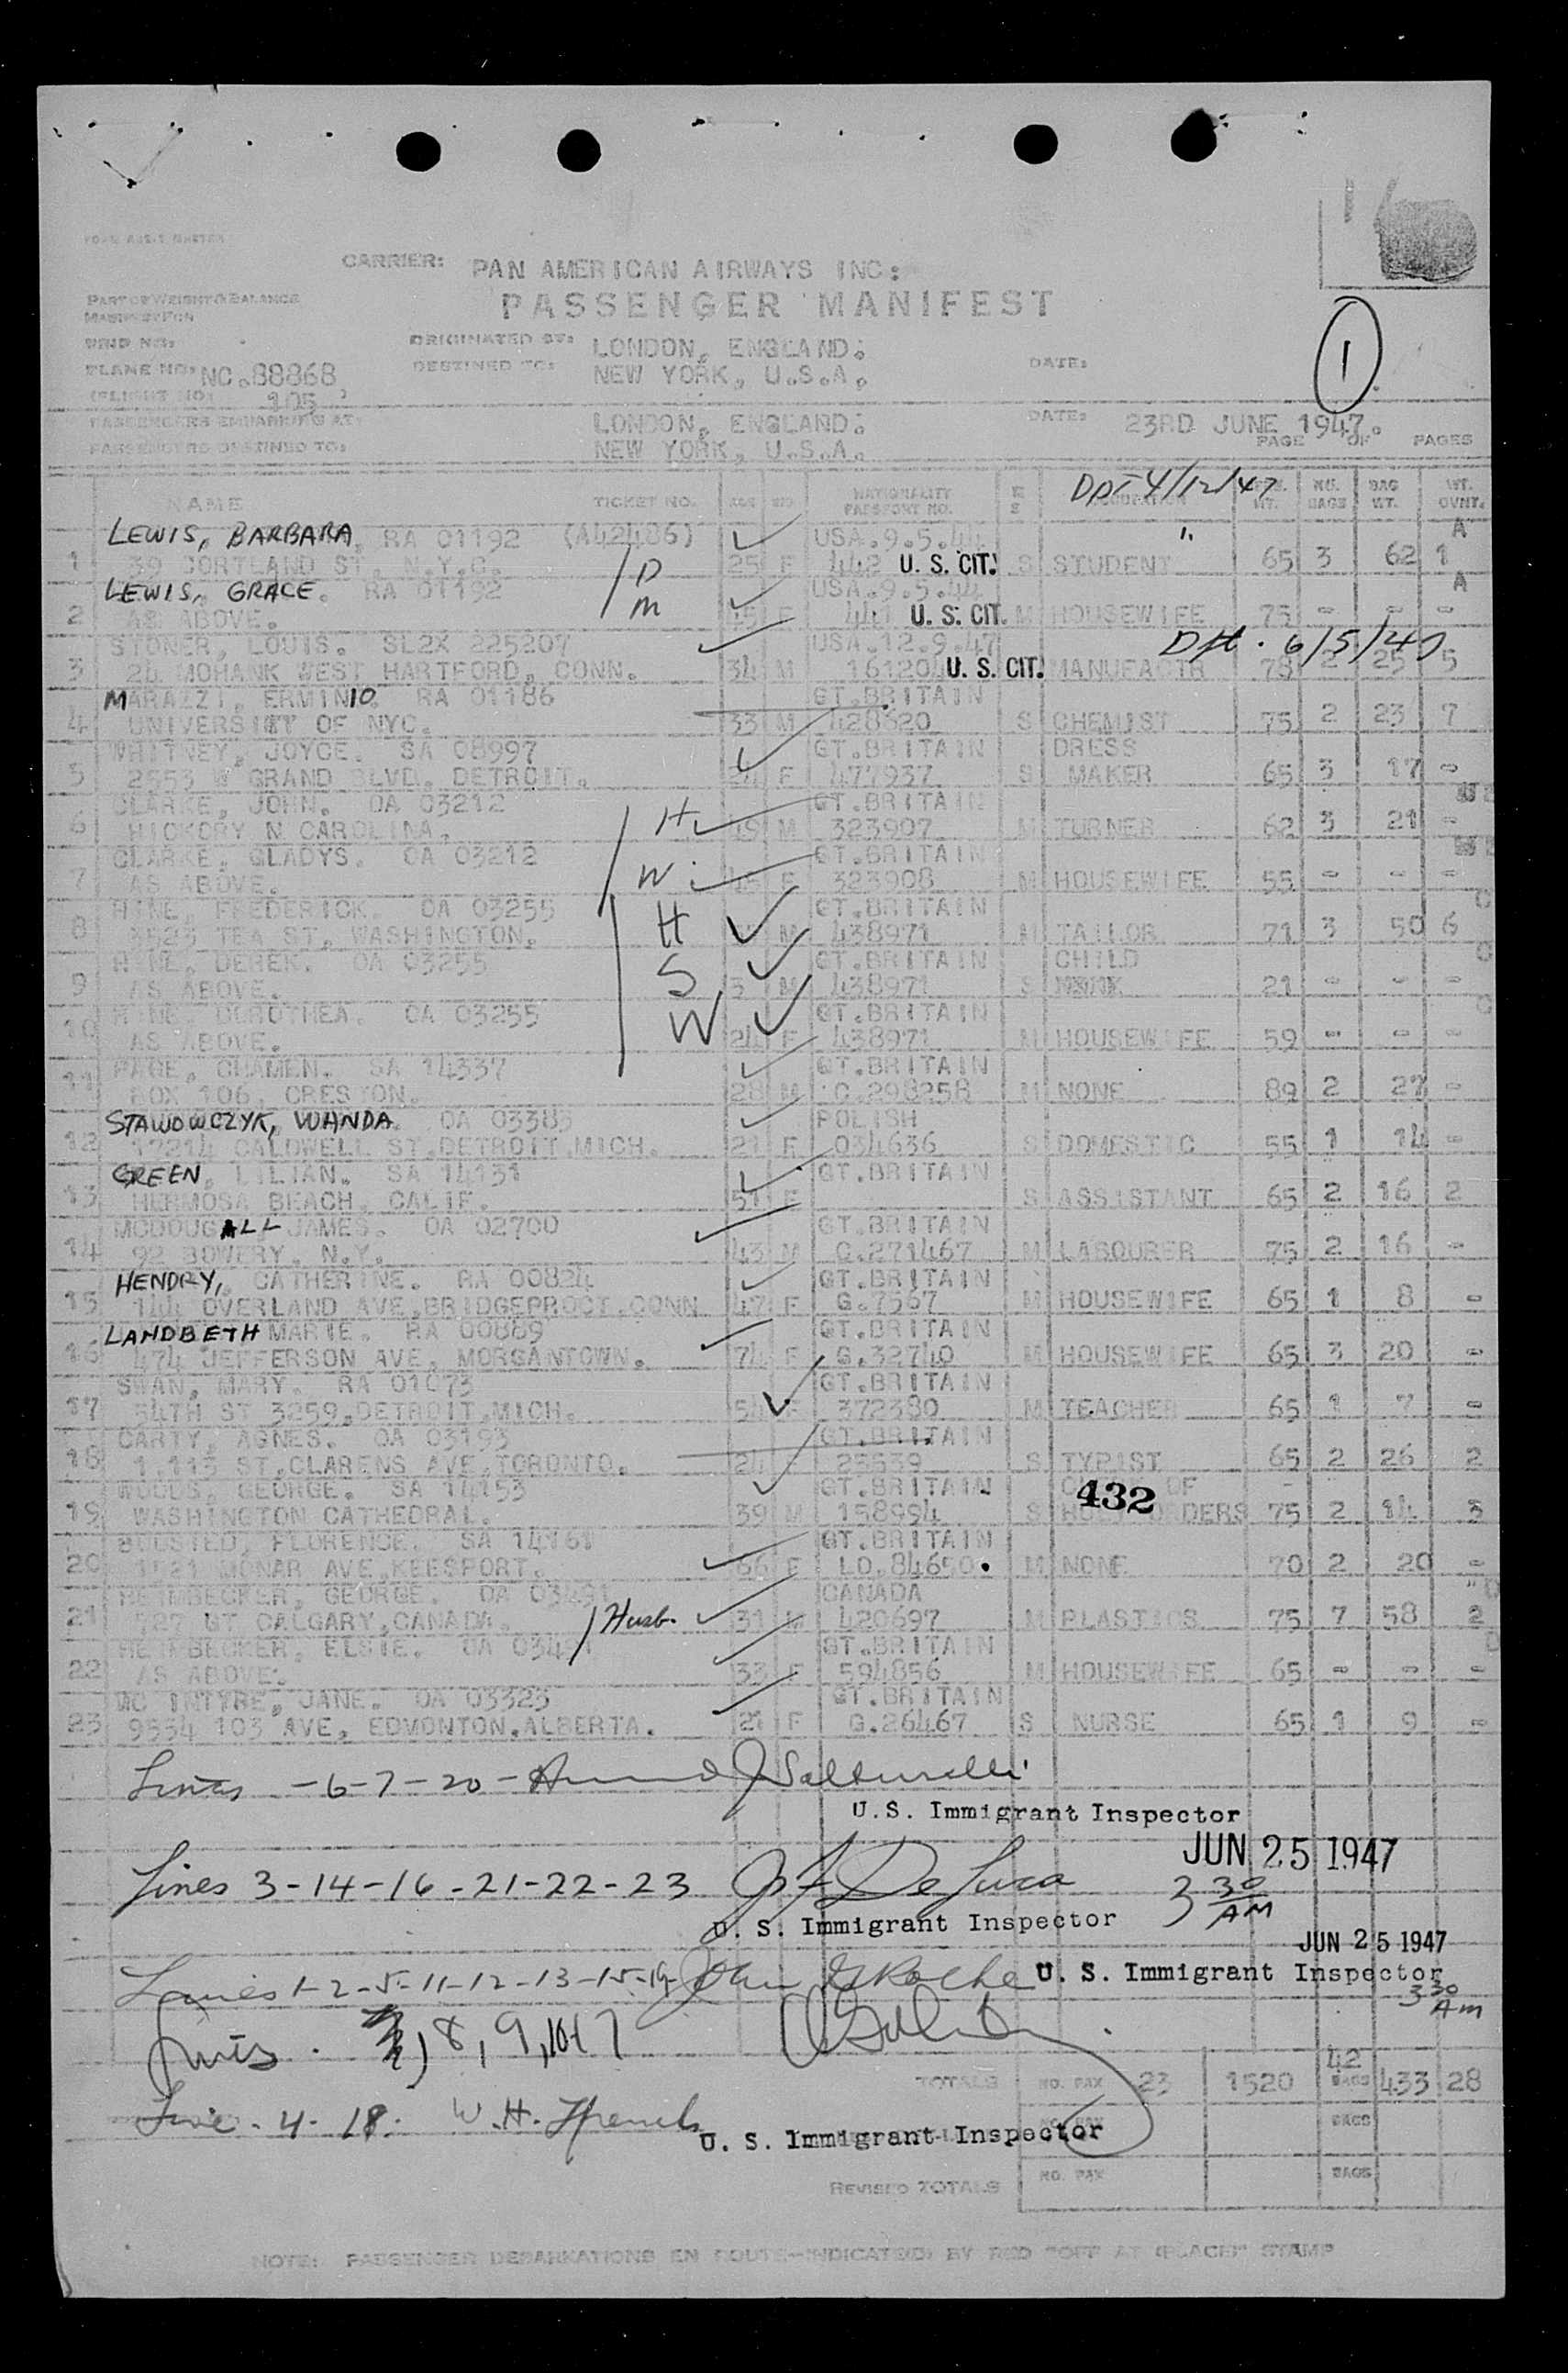 16
CARRIER: PAN AMERICAN AIRWAYS INC:
PASSENGER MANIFEST
PART OF WEIGHT & BALANCE
MANIFEST FOR
TRIP NO:
ORIGINATED BY: LONDON, ENGLAND:
PLANE NO: NC.88868 DESTINED TO: NEW YORK, U.S.A. DATE:
1
(FLIGHT NO: 105)
PASSENGERS EMBARKING AT: LONDON, ENGLAND: DATE: 23RD JUNE 1947.
PASSENGERS DESTINED TO: NEW YORK, U.S.A. PAGE OF PAGES
DPT 4/12/47
NAME TICKET NO. AGE SEX NATIONALITY PASSPORT NO. M S OCCUPATION WT. NO. BAGS BAG WT. WT. OVNT.
LEWIS, BARBARA, RA 01192 (A42486) USA.9.5.44 " A
1 39 CORTLAND ST, N.Y.C. D 25 F 442 U. S. CIT. S STUDENT 65 3 62 1
LEWIS, GRACE. RA 01192 USA.9.5.44 A
2 AS ABOVE. M 45 F 441 U. S. CIT. M HOUSEWIFE 75 - - -
STONER, LOUIS. SL2X 225207 USA.12.9.47 Dpt. 6/5/47
3 24 MOHANK WEST HARTFORD, CONN. 34 M 161204 U. S. CIT. MANUFACTR 78 2 25 5
MARAZZI, ERMINIO. RA 01186 GT.BRITAIN
4 UNIVERSITY OF NYC. 33 M 428320 S CHEMIST 75 2 23 7
WHITNEY, JOYCE. SA 08997 GT.BRITAIN DRESS
5 2553 W GRAND BLVD. DETROIT. 24 F 477937 S MAKER 65 3 17 -
CLARKE, JOHN. OA 03212 GT.BRITAIN
6 HICKORY N CAROLINA. H 49 M 323907 M TURNER 62 3 21 -
CLARKE, GLADYS. OA 03212 GT.BRITAIN
7 AS ABOVE. W. 45 F 323908 M HOUSEWIFE 55 - - -
HINE, FREDERICK. OA 03255 GT.BRITAIN C
8 3523 TEA ST, WASHINGTON. H M 438971 M TAILOR 71 3 50 6
HINE, DEREK. OA 03255 GT.BRITAIN CHILD C
9 AS ABOVE. S 3 M 438971 S 21 - - -
HINE, DOROTHEA. OA 03255 GT.BRITAIN C
10 AS ABOVE. W 24 F 438971 M HOUSEWIFE 59 - - -
PAGE, CHAMEN. SA 14337 GT.BRITAIN
11 BOX 106, CRESTON. 28 M C.298258 M NONE 89 2 27 -
STAWOWCZYK, WANDA OA 03385 POLISH
12 17214 CALDWELL ST.DETROIT.MICH. 21 F 034636 S DOMESTIC 55 1 14 -
GREEN, LILIAN. SA 14131 GT.BRITAIN
13 HERMOSA BEACH, CALIF. 51 F S ASSISTANT 65 2 16 2
MCDOUGALL JAMES. OA 02700 GT.BRITAIN
14 92 BOWERY, N.Y. 43 M C.271467 M LABOURER 75 2 16 -
HENDRY, CATHERINE. RA 00824 GT.BRITAIN
15 144 OVERLAND AVE,BRIDGEPROCT.CONN 47 F G.7567 M HOUSEWIFE 65 1 8 -
LANDBETH MARIE. RA 00869 GT.BRITAIN
16 474 JEFFERSON AVE, MORGANTOWN. 74 F G.32740 M HOUSEWIFE 65 3 20 -
SWAN, MARY. RA 01073 GT.BRITAIN
17 54TH ST 3259,DETROIT,MICH. 54 F 372380 M TEACHER 65 1 7 -
CARTY, AGNES. OA 03193 GT.BRITAIN
18 1,113 ST.CLARENS AVE,TORONTO. 24 25539 S TYPIST 65 2 26 2
WOODS, GEORGE. SA 14153 GT.BRITAIN OF
432
19 WASHINGTON CATHEDRAL. 39 M 158994 S HOLY ORDERS 75 2 14 3
BULSTED, FLORENCE. SA 14161 GT.BRITAIN
20 1521 MONAR AVE,KEESPORT. 66 F LO.84650. M NONE 70 2 20 -
HEIMBECKER, GEORGE. OA 03491 CANADA
21 527 GT CALGARY,CANADA. Husb. 31 M 420697 M PLASTICS 75 7 58 2
HEIMBECKER, ELSIE. OA 03491 GT.BRITAIN
22 AS ABOVE. 33 F 594856 M HOUSEWIFE 65 - - -
MC INTYRE, JANE. OA 03325 GT.BRITAIN
23 9534 103 AVE, EDMONTON.ALBERTA. 21 F G.26467 S NURSE 65 1 9 -
Lines -6-7-20-
U.S. Immigrant Inspector
JUN 25 1947
Lines 3-14-16-21-22-23 De Luca 3 30 AM
U. S. Immigrant Inspector
JUN 25 1947
Lines 1-2-5-11-12-13-15-19- John Roche U. S. Immigrant Inspector
3 30 Am
Lines . 8, 9, 10 17
TOTALS NO. PAX 23 1520 42 BAGS 433 28
Line - 4 - 18. W. H. French
U. S. Immigrant Inspector
NO. PAX BAGS
REVISED TOTALS NO. PAX BAGS
NOTE: PASSENGER DEBARKATIONS EN ROUTE—INDICATED BY RED "OFF AT (PLACE)" STAMP